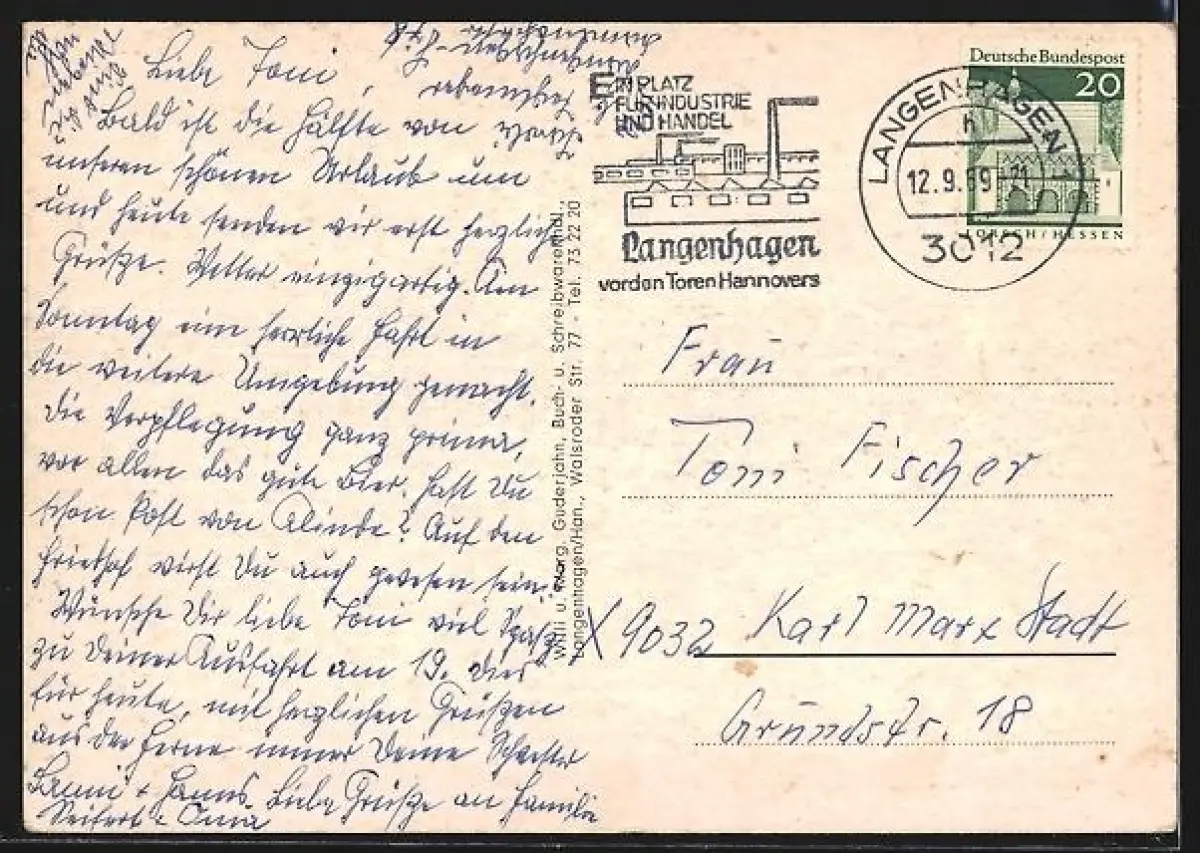 Liebe Toni,
Bald ist die Hälfte von
unseren schönen Urlaub um
und heute senden wir erst herzliche
Grüße. Wetter einzigartig. Am
Sonntag eine herrliche Fahrt in
die weitere Umgebung gemacht.
Die Verpflegung ganz prima,
vor allen das gute Bier. Hast Du
schon Post von Alinde? Auf den
Friedhof wirst Du auch gewesen sein.
Wünsche Dir liebe Toni viel Spaß
zu Deiner Ausfahrt am 19. Dies
für heute, mit herzlichen Grüßen
aus der Ferne immer Deine Schwester
+ Hanns. Liebe Grüße an Familie
Seifert + Oma
Willi u. Marg. Güderjahn, Buch- u. Schreibwarenhdl.,
Langenhagen/Han., Walsroder Str. 77 - Tel. 73 22 20
EIN PLATZ
FÜR INDUSTRIE
UND HANDEL
Langenhagen
vor den Toren Hannovers
LANGENHAGEN 1
h
12.9.69-21
3012
Deutsche Bundespost
20
LORSCH/HESSEN
Frau
Toni Fischer
X 9032 Karl Marx Stadt
Gründstr. 18